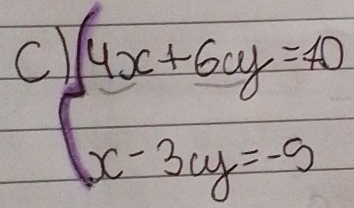 C) { 4x + 6y = 10
x - 3y = -9